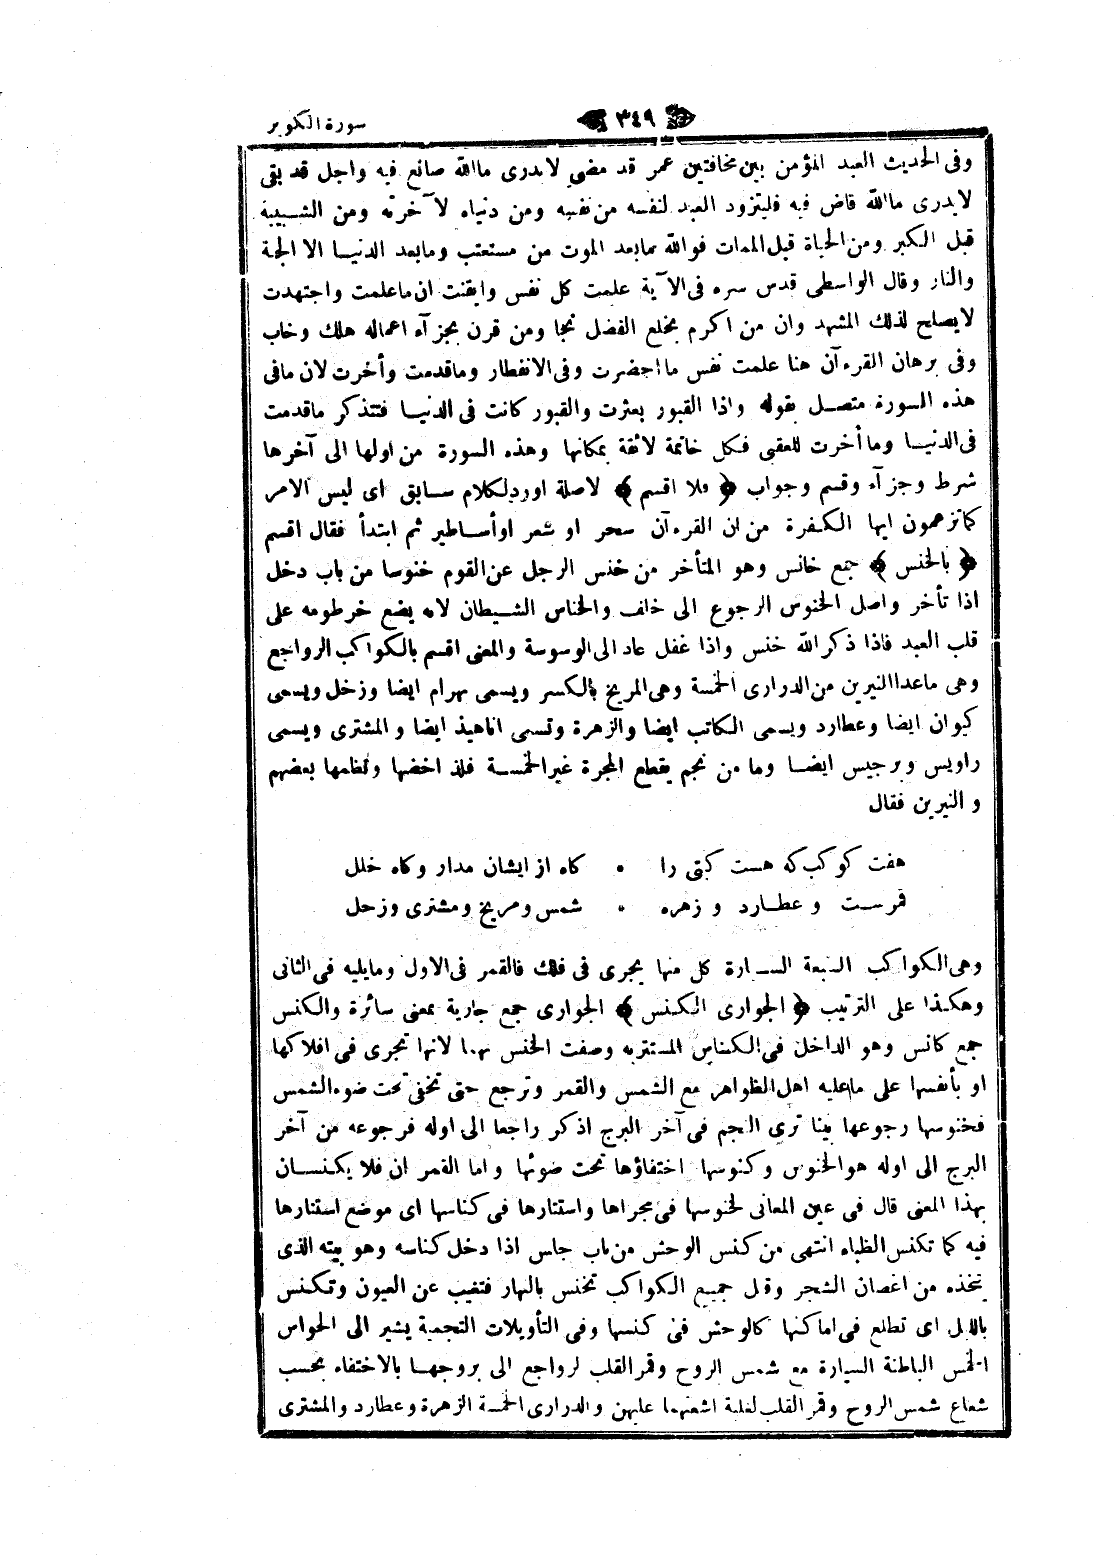 سورة التكوير
٣٤٩
وفى الحديث العبد المؤمن بين مخافتين عمر قد مضى لايدرى ماالله صانع فيه واجل قد بقى
لايدرى ماالله قاض فيه فليتزود العبد لنفسه من نفسه ومن دنياه لآخرته ومن الشبيبة
قبل الكبر ومن الحياة قبل الممات فوالله مابعد الموت من مستعتب ومابعد الدنيا الا الجنة
والنار وقال الواسطى قدس سره فى الآية علمت كل نفس وايقنت ان ماعلمت واجتهدت
لايصلح لذلك المشهد وان من اكرم بخلع الفضل نجا ومن قرن بجزآء اعماله هلك وخاب
وفى برهان القرءآن هنا علمت نفس مااحضرت وفى الانفطار وماقدمت وأخرت لان مافى
هذه السورة متصل بقوله واذا القبور بعثرت والقبور كانت فى الدنيا فتتذكر ماقدمت
فى الدنيا وماأخرت للعقبى فكل خاتمة لائقة بمكانها وهذه السورة من اولها الى آخرها
شرط وجزآء وقسم وجواب ﴿ فلا اقسم ﴾ لاصلة اوردلكلام سابق اى ليس الامر
كماتزعمون ايها الكفرة من ان القرءآن سحر او شعر اوأساطير ثم ابتدأ فقال اقسم
﴿ بالخنس ﴾ جمع خانس وهو المتأخر من خنس الرجل عن القوم خنوسا من باب دخل
اذا تأخر واصل الخنوس الرجوع الى خلف والخناس الشيطان لانه يضع خرطومه على
قلب العبد فاذا ذكر الله خنس واذا غفل عاد الى الوسوسة والمعنى اقسم بالكواكب الرواجع
وهى ماعداالنيرين من الدرارى الخمسة وهى المريخ بالكسر ويسمى بهرام ايضا وزحل ويسمى
كيوان ايضا وعطارد ويسمى الكاتب ايضا والزهرة وتسمى اناهيذ ايضا والمشترى ويسمى
راويس وبرجيس ايضا وما من نجم يقطع المجرة غير الخمسة فلذا خصها ونظمها بعضهم
و النيرين فقال
هفت كوكب كه هست كيتى را • كاه از ايشان مدار وكاه خلل
قمرست و عطارد و زهره • شمس ومريخ ومشترى وزحل
وهى الكواكب السبعة السيارة كل منها يجرى فى فلك فالقمر فى الاول ومايليه فى الثانى
وهكذا على الترتيب ﴿ الجوارى الكنس ﴾ الجوارى جمع جارية بمعنى سائرة والكنس
جمع كانس وهو الداخل فى الكناس المستتربه وصفت الخنس بهما لانها تجرى فى افلاكها
او بأنفسها على ماعليه اهل الظواهر مع الشمس والقمر وترجع حتى تخفى تحت ضوء الشمس
فخنوسها رجوعها بينا ترى النجم فى آخر البرج اذكر راجعا الى اوله فرجوعه من آخر
البرج الى اوله هوالخنوس وكنوسها اختفاؤها تحت ضوئها واما القمران فلا يكنسان
بهذا المعنى قال فى عين المعانى لخنوسها فى مجراها واستتارها فى كناسها اى موضع استتارها
فيه كما تكنس الظباء انتهى من كنس الوحش من باب جلس اذا دخل كناسه وهو بيته الذى
يتخذه من اغصان الشجر وقيل جميع الكواكب تخنس بالنهار فتغيب عن العيون وتكنس
بالليل اى تطلع فى اماكنها كالوحش فى كنسها وفى التأويلات النجمية يشير الى الحواس
الخمس الباطنة السيارة مع شمس الروح وقمر القلب لرواجع الى بروجها بالاختفاء بحسب
شعاع شمس الروح وقمر القلب لغلبة اشعتهما عليهن والدرارى الخمسة الزهرة وعطارد والمشترى